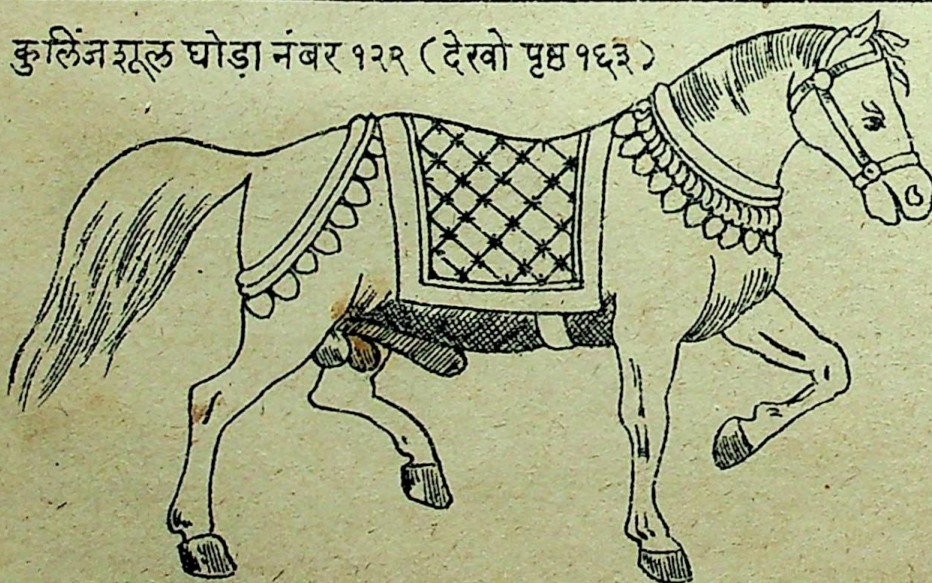 कुलिंजशूल घोड़ा नंबर १२२ (देखो पृष्ठ १६३)